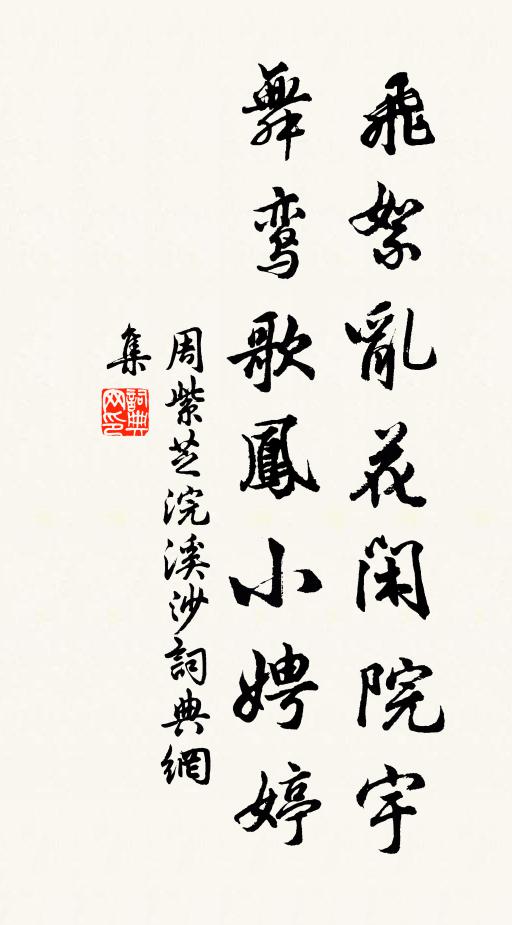 飛絮亂花闲院宇
舞鸾歌鳳小娉婷
周紫芝浣溪沙詞典網
集
詞典
网印